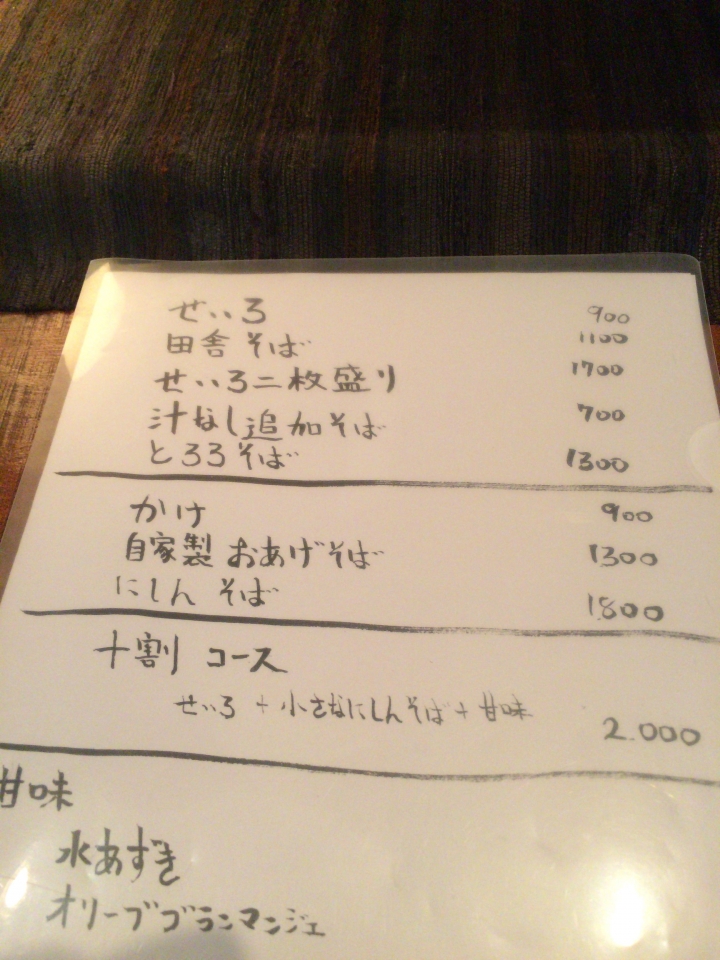 せいろ 900
田舎そば 1100
せいろ二枚盛り 1700
汁なし追加そば 700
とろろそば 1300
かけ 900
自家製 おあげそば 1300
にしん そば 1800
十割 コース
せいろ + 小さなにしんそば + 甘味 2.000
甘味
水あずき
オリーブブランマンジェ